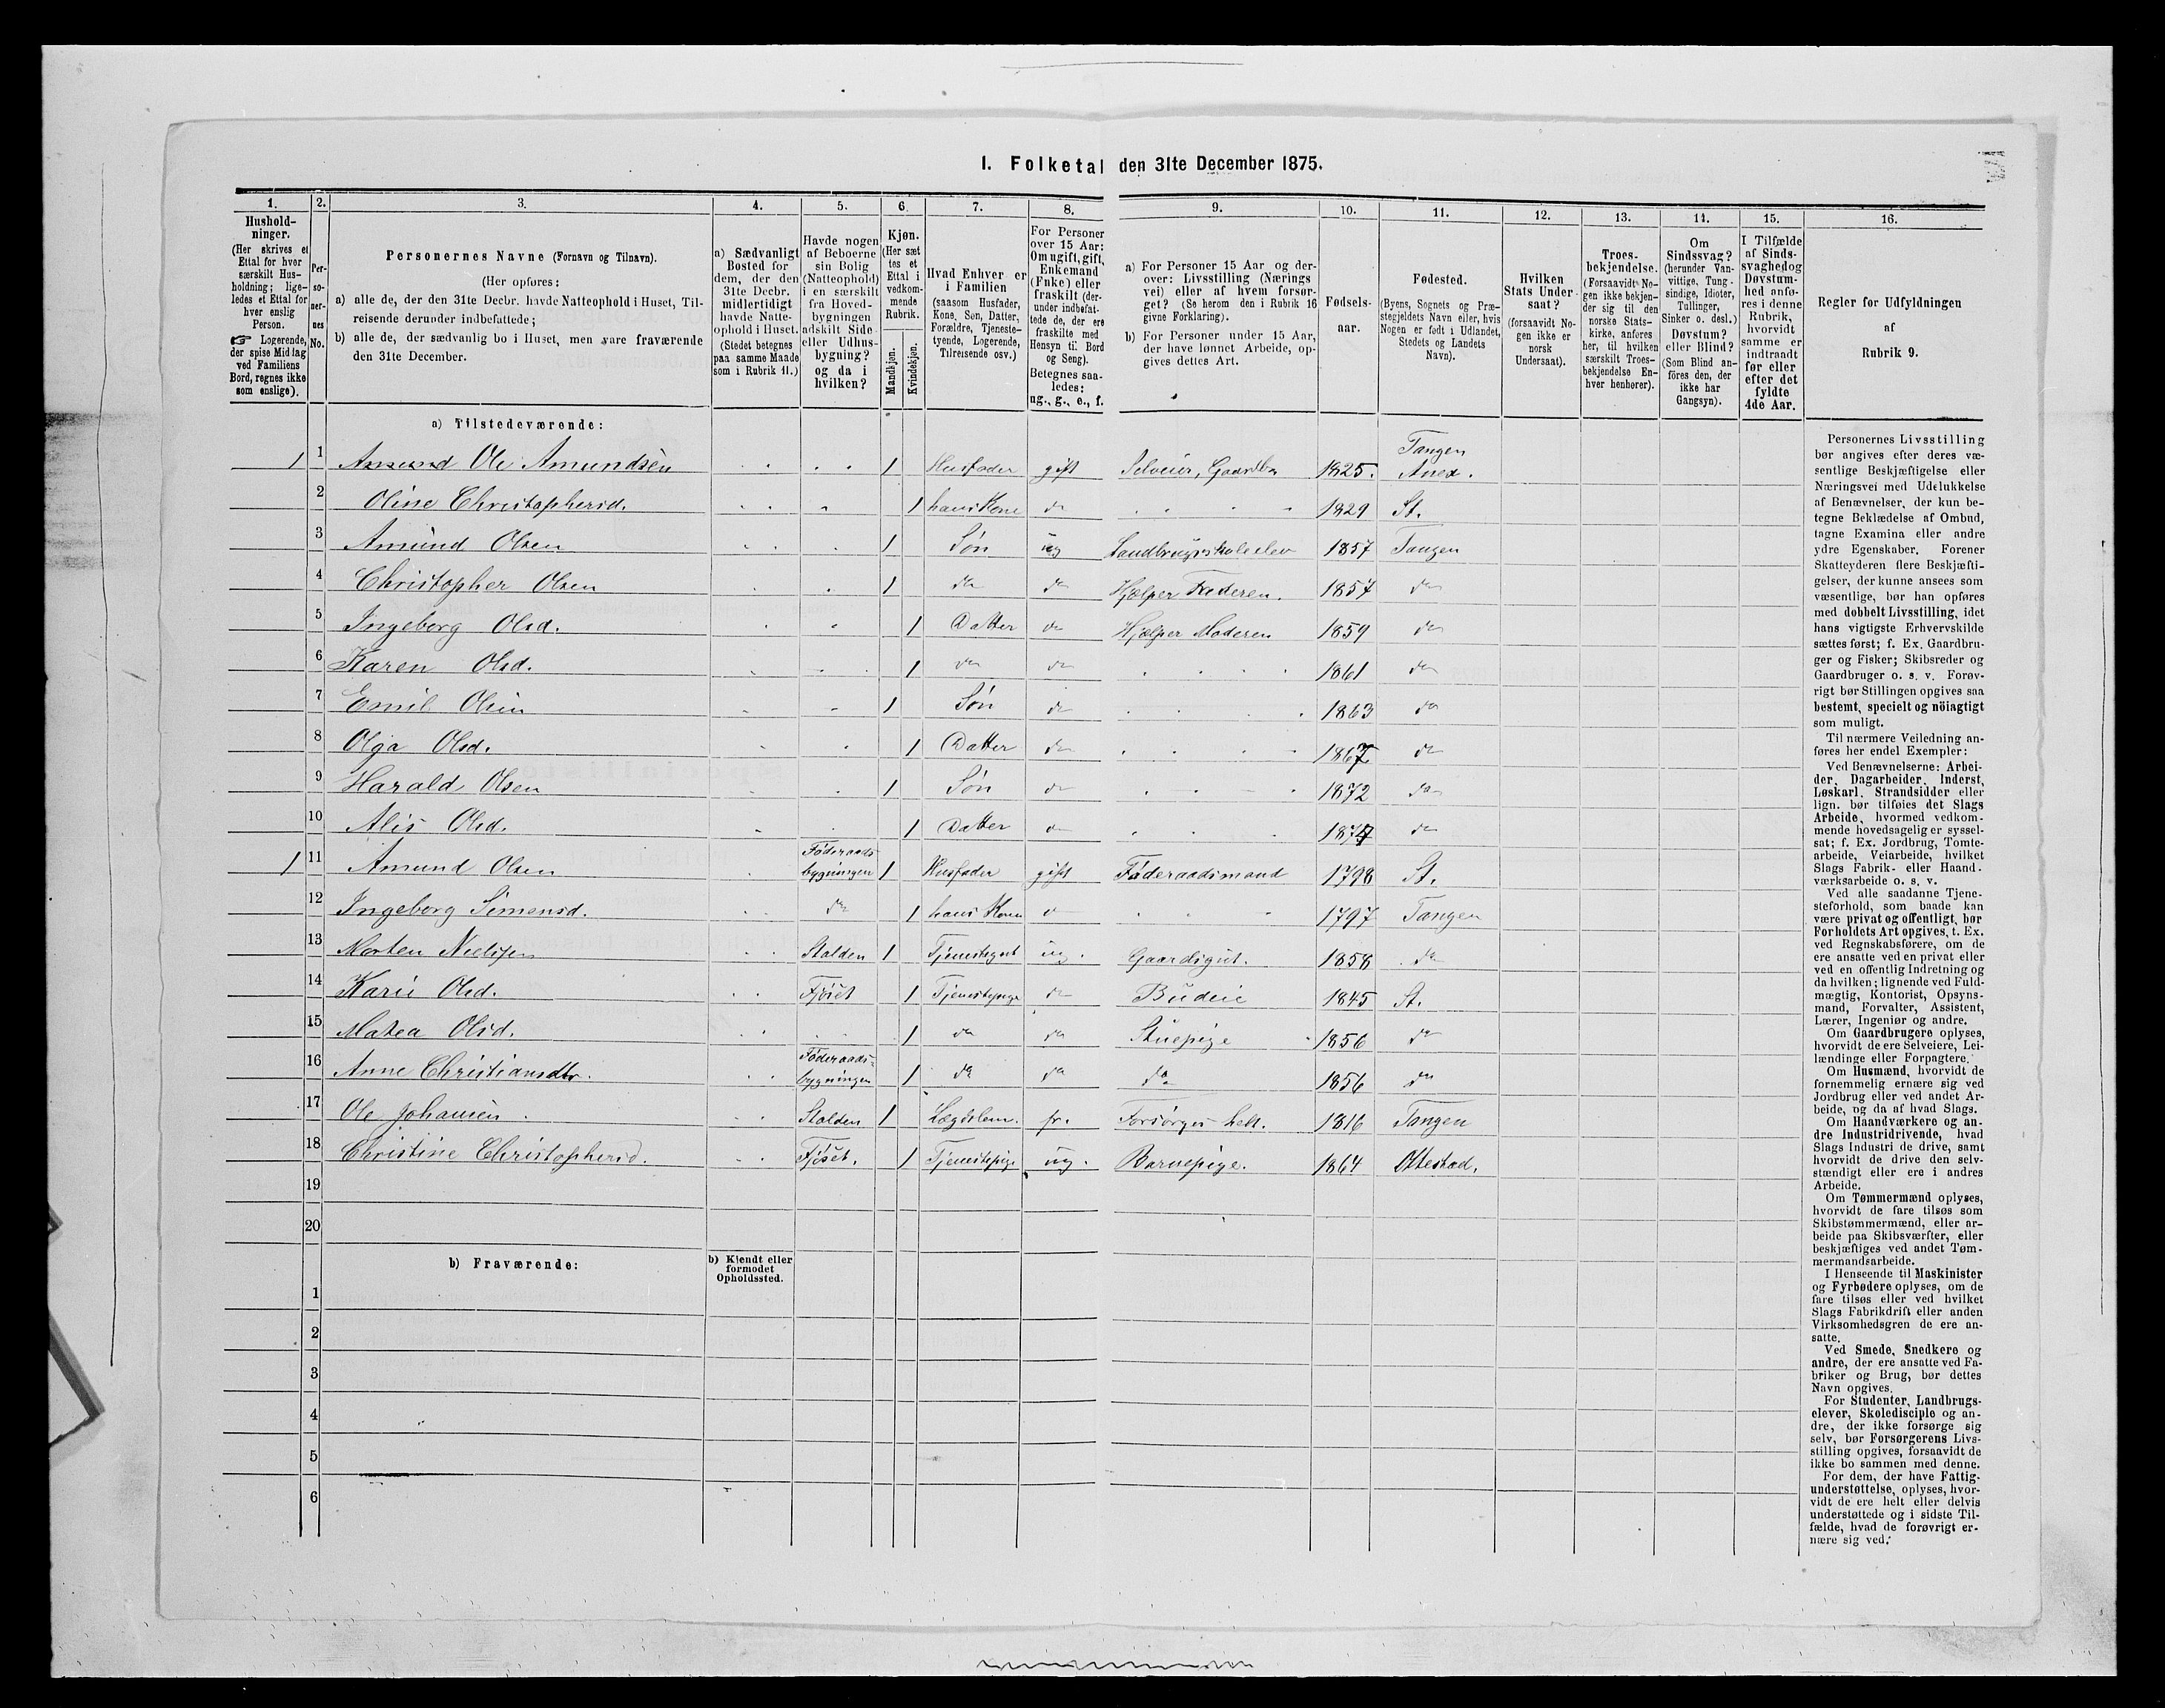 I. Folketal den 31te December 1875.
1.
Hushold-
ninger.
(Her skrives et
Ettal for hver
særskilt Hus-
holdning; lige-
ledes et Ettal for
hver enslig
Person.
☞ Logerende,
der spise Middag
ved Familiens
Bord, regnes ikke
som enslige).
2.
Per-
so-
ner-
nes
No.
3.
Personernes Navne (Fornavn og Tilnavn).
(Her opføres:
a) alle de, der den 31te Decbr. havde Natteophold i Huset, Til-
reisende derunder indbefattede;
b) alle de, der sædvanlig bo i Huset, men vare fraværende
den 31te December.
4.
a) Sædvanligt
Bosted for
dem, der den
31te Decbr.
midlertidigt
havde Natte-
ophold i Huset.
(Stedet betegnes
paa samme Maade
som i Rubrik 11.)
5.
Havde nogen
af Beboerne
sin Bolig
(Natteophold)
i en særskilt
fra Hoved-
bygningen
adskilt Side-
eller Udhus-
bygning?
og da i
hvilken?
6.
Kjøn.
(Her sæt
tes et
Ettal i
vedkom-
mende
Rubrik.
Mandkjøn.
Kvindekjøn.
7.
Hvad Enhver er
i Familien
(saasom Husfader,
Kone, Søn, Datter,
Forældre, Tjeneste-
tyende, Logerende,
Tilreisende osv.)
8.
For Personer
over 15 Aar:
Om ugift, gift,
Enkemand
(Enke) eller
fraskilt (der-
under indbefat-
tede de, der ere
fraskilte med
Hensyn til Bord
og Seng).
Betegnes saa-
ledes:
ug., g., e., f.
9.
a) For Personer 15 Aar og der-
over: Livsstilling (Nærings
vei) eller af hvem forsør-
get? (Se herom den i Rubrik 16
givne Forklaring).
b) For Personer under 15 Aar,
der have lønnet Arbeide, op-
gives dettes Art.
10.
Fødsels-
aar.
11.
Fødested.
(Byens, Sognets og Præ-
stegjeldets Navn eller, hvis
Nogen er født i Udlandet,
Stedets og Landets
Navn).
12.
Hvilken
Stats Under-
saat?
(forsaavidt No-
gen ikke er
norsk
Undersaat).
13.
Troes-
bekjendelse.
(Forsaavidt No-
gen ikke bekjen-
der sig til den
norske Stats-
kirke, anføres
her, til hvilken
særskilt Troes-
bekjendelse En-
hver henhører).
14.
Om
Sindssvag?
(herunder Van-
vittige, Tung-
sindige, Idioter,
Tullinger,
Sinker o. desl.)
Døvstum?
eller Blind?
(Som Blind an-
föres den, der
ikke har
Gangsyn).
15.
I Tilfælde
af Sinds-
svaghed og
Døvstum-
hed anfø-
res i denne
Rubrik,
hvorvidt
samme er
indtraadt
før eller
efter det
fyldte
4de Aar.
16.
Regler for Udfyldningen
af
Rubrik 9.
a) Tilstedeværende:
1 1 Amund Ole Amundsen 1 Husfader gift Selveier, Gaardbr 1825. Tangen Anex.
2 Oline Christophersd. 1 hans Kone do 1829 St.
3 Amund Olsen 1 Søn ug Landbrugsskoleelev 1857 Tangen
4 Christopher Olsen 1 do do Hjælper Faderen. 1857 do
5 Ingeborg Olsd. 1 Datter do Hjælper Moderen 1859 do
6 Karen Olsd. 1 do do 1861 do
7 Emil Olsen 1 Søn do 1863 do
8 Olga Olsd. 1 Datter do 1867 do
9 Harald Olsen 1 Søn do 1872 do
10 Alis Olsd. 1 Datter do do
1 11 Amund Olsen Föderaads-bygningen 1 Husfader gift Föderaadsmand 1798 St.
12 Ingeborg Simensd. do 1 hans Kone do 1797 Tangen
13 Morten Nielsen Stalden 1 Tjenestegut ug. Gaardsgut. 1858 do
14 Kari Olsd. Fjöset 1 Tjenestepige do Budeie 1845 St.
15 Matea Olsd. 1 do do Stuepige 1856 do
16 Anne Christiansdtr. Föderaads-bygningen 1 do do do 1856 do
17 Ole Johansen. Stalden 1 Lægdslem. fr. Forsörges helt. 1816 Tangen
18 Christine Christophersd. Fjöset. 1 Tjenestepige ug. Barnepige. 1864 Ottestad.
19
20
b) Fraværende:
b) Kjendt eller
formodet
Opholdssted.
1
2
3
4
5
6
Personernes Livsstilling
bør angives efter deres væ-
sentlige Beskjæftigelse eller
Næringsvei med Udelukkelse
af Benævnelser, der kun be-
tegne Beklædelse af Ombud,
tagne Examina eller andre
ydre Egenskaber. Forener
Skatteyderen flere Beskjæfti-
gelser, der kunne ansees som
væsentlige, bør han opføres
med dobbelt Livsstilling, idet
hans vigtigste Erhvervskilde
sættes først; f. Ex. Gaardbru-
ger og Fisker; Skibsreder og
Gaardbruger o. s. v. Forøv-
rigt bør Stillingen opgives saa
bestemt, specielt og nöiagtigt
som muligt.
Til nærmere Veiledning an-
føres her endel Exempler:
Ved Benævnelserne: Arbei-
der, Dagarbeider, Inderst,
Løskarl, Strandsidder eller
lign. bør tilføies det Slags
Arbeide, hvormed vedkom-
mende hovedsagelig er syssel-
sat; f. Ex. Jordbrug, Tomte-
arbeide, Veiarbeide, hvilket
Slags Fabrik- eller Haand-
værksarbeide o. s. v.
Ved alle saadanne Tjene-
steforhold, som baade kan
være privat og offentligt, bør
Forholdets Art opgives, t. Ex.
ved Regnskabsførere, om de
ere ansatte ved en privat eller
ved en offentlig Indretning og
da hvilken; lignende ved Fuld-
mægtig, Kontorist, Opsyns-
mand, Forvalter, Assistent,
Lærer, Ingeniør og andre.
Om Gaardbrugere oplyses,
hvorvidt de ere Selveiere, Lei-
lændinge eller Forpagtere.
Om Husmænd, hvorvidt de
fornemmelig ernære sig ved
Jordbrug eller ved andet Ar-
beide, og da af hvad Slags.
Om Haandværkere og an-
dre Industridrivende, hvad
Slags Industri de drive, samt
hvorvidt de drive den selv-
stændigt eller ere i andres
Arbeide.
Om Tømmermænd oplyses,
hvorvidt de fare tilsøs som
Skibstømmermænd, eller ar-
beide paa Skibsværfter, eller
beskjæftiges ved andet Tøm-
mermandsarbeide.
I Henseende til Maskinister
og Fyrbødere oplyses, om de
fare tilsøs eller ved hvilket
Slags Fabrikdrift eller anden
Virksomhedsgren de ere an-
satte.
Ved Smede, Snedkere og
andre, der ere ansatte ved Fa-
briker og Brug, bør dettes
Navn opgives.
For Studenter, Landbrugs-
elever, Skoledisciple og an-
dre, der ikke forsørge sig
selv, bør Forsørgerens Livs-
stilling opgives, forsaavidt de
ikke bo sammen med denne.
For dem, der have Fattig-
understøttelse, oplyses, hvor-
vidt de ere helt eller delvis
understøttede og i sidste Til-
fælde, hvad de forøvrigt er-
nære sig ved.